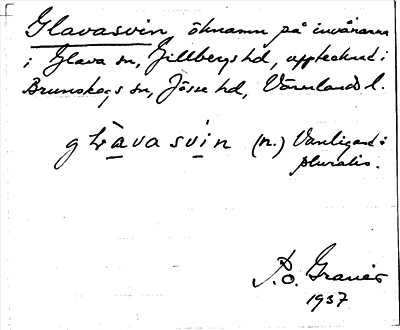 Glavasvin, öknamn på invånarna
i Glava sn, Gillbergs hd, upptecknat i
Brunskogs sn, Jösse hd, Värmlands l.
glavasvin (n.) Vanligast i
pluralis.
P. O. Graner
1937